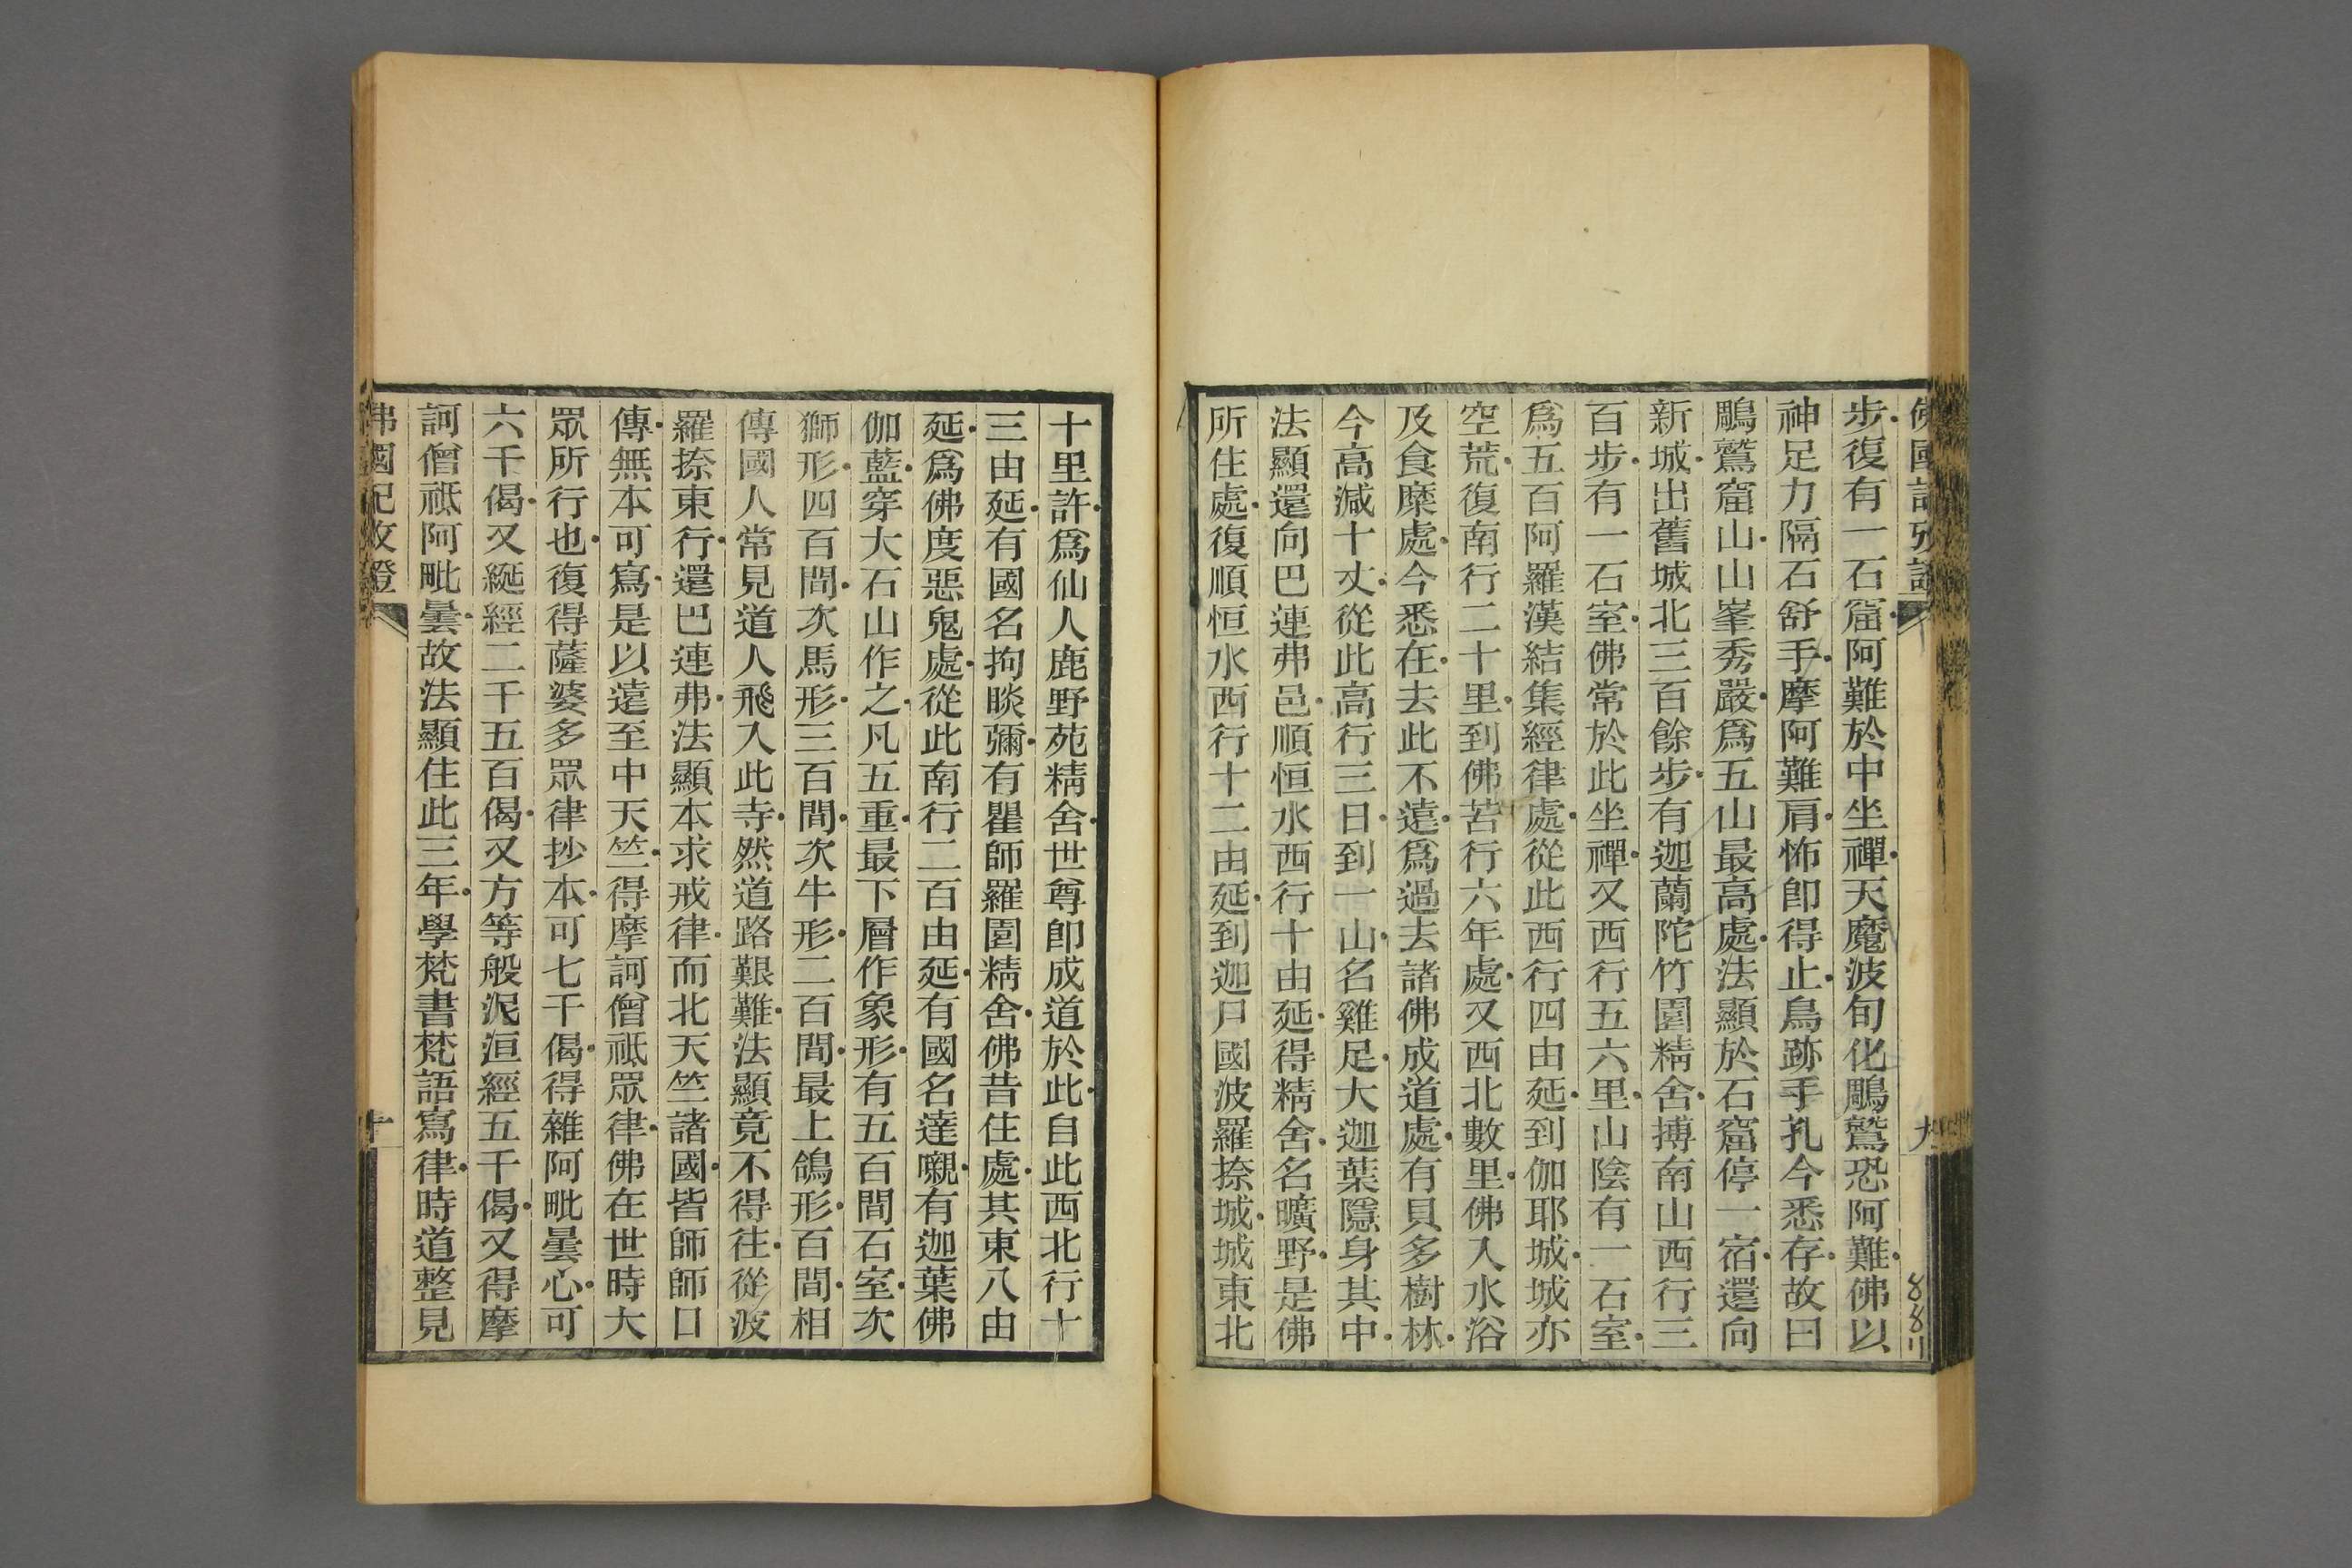 佛國記攷證
九
881
步復有一石窟阿難於中坐禪天魔波旬化鵰鷲恐阿難佛以
神足力隔石舒手摩阿難肩怖卽得止鳥跡手孔今悉存故曰
鵰鷲窟山山峯秀嚴爲五山最高處法顯於石窟停一宿還向
新城出舊城北三百餘步有迦蘭陀竹園精舍搏南山西行三
百步有一石室佛常於此坐禪又西行五六里山陰有一石室
爲五百阿羅漢結集經律處從此西行四由延到伽耶城城亦
空荒復南行二十里到佛苦行六年處又西北數里佛入水浴
及食糜處今悉在去此不遠爲過去諸佛成道處有貝多樹林
今高減十丈從此高行三日到一山名雞足大迦葉隱身其中
法顯還向巴連弗邑順恒水西行十由延得精舍名曠野是佛
所住處復順恒水西行十二由延到迦尸國波羅捺城城東北
十里許爲仙人鹿野苑精舍世尊卽成道於此自此西北行十
三由延有國名拘睒彌有瞿師羅園精舍佛昔住處其東八由
延爲佛度惡鬼處從此南行二百由延有國名達嚫有迦葉佛
伽藍穿大石山作之凡五重最下層作象形有五百間石室次
獅形四百間次馬形三百間次牛形二百間最上鴿形百間相
傳國人常見道人飛入此寺然道路艱難法顯竟不得往從波
羅捺東行還巴連弗法顯本求戒律而北天竺諸國皆師師口
傳無本可寫是以遠至中天竺得摩訶僧祗眾律佛在世時大
眾所行也復得薩婆多眾律抄本可七千偈得雜阿毗曇心可
六千偈又綖經二千五百偈又方等般泥洹經五千偈又得摩
訶僧祗阿毗曇故法顯住此三年學梵書梵語寫律時道整見
佛國記攷證
十